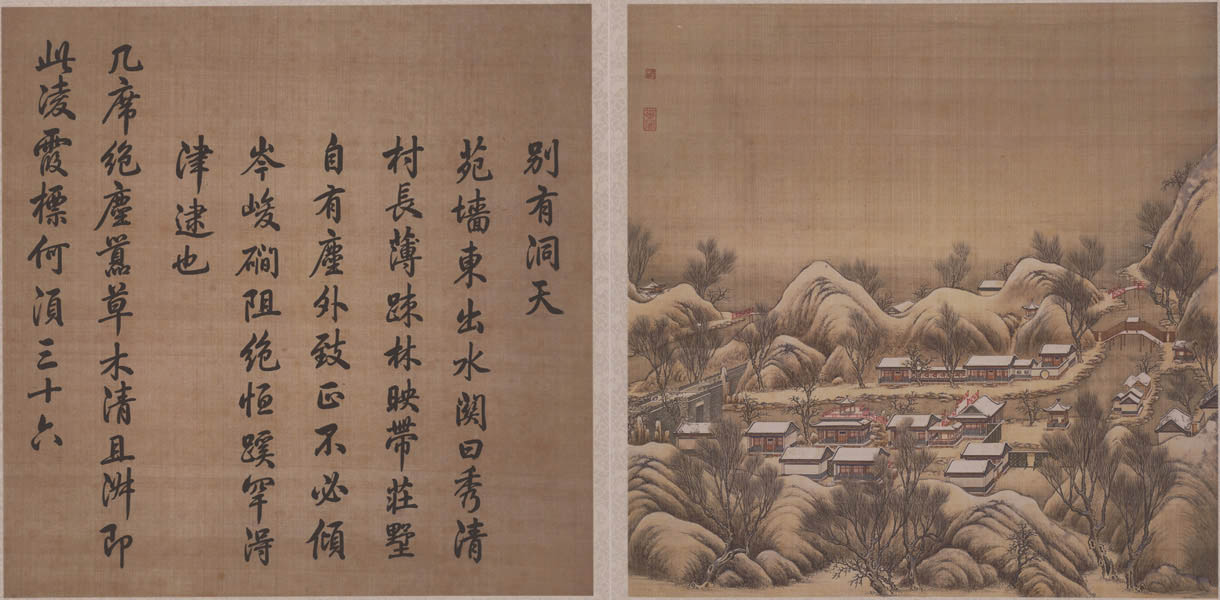 别有洞天
苑墻東出水関曰秀清
村長薄疎林映帶莊墅
自有塵外致正不必傾
岑峻磵阻絶恒蹊罕淂
津逮也
几席絶塵囂草木清且淑即
此凌霞標何湏三十六